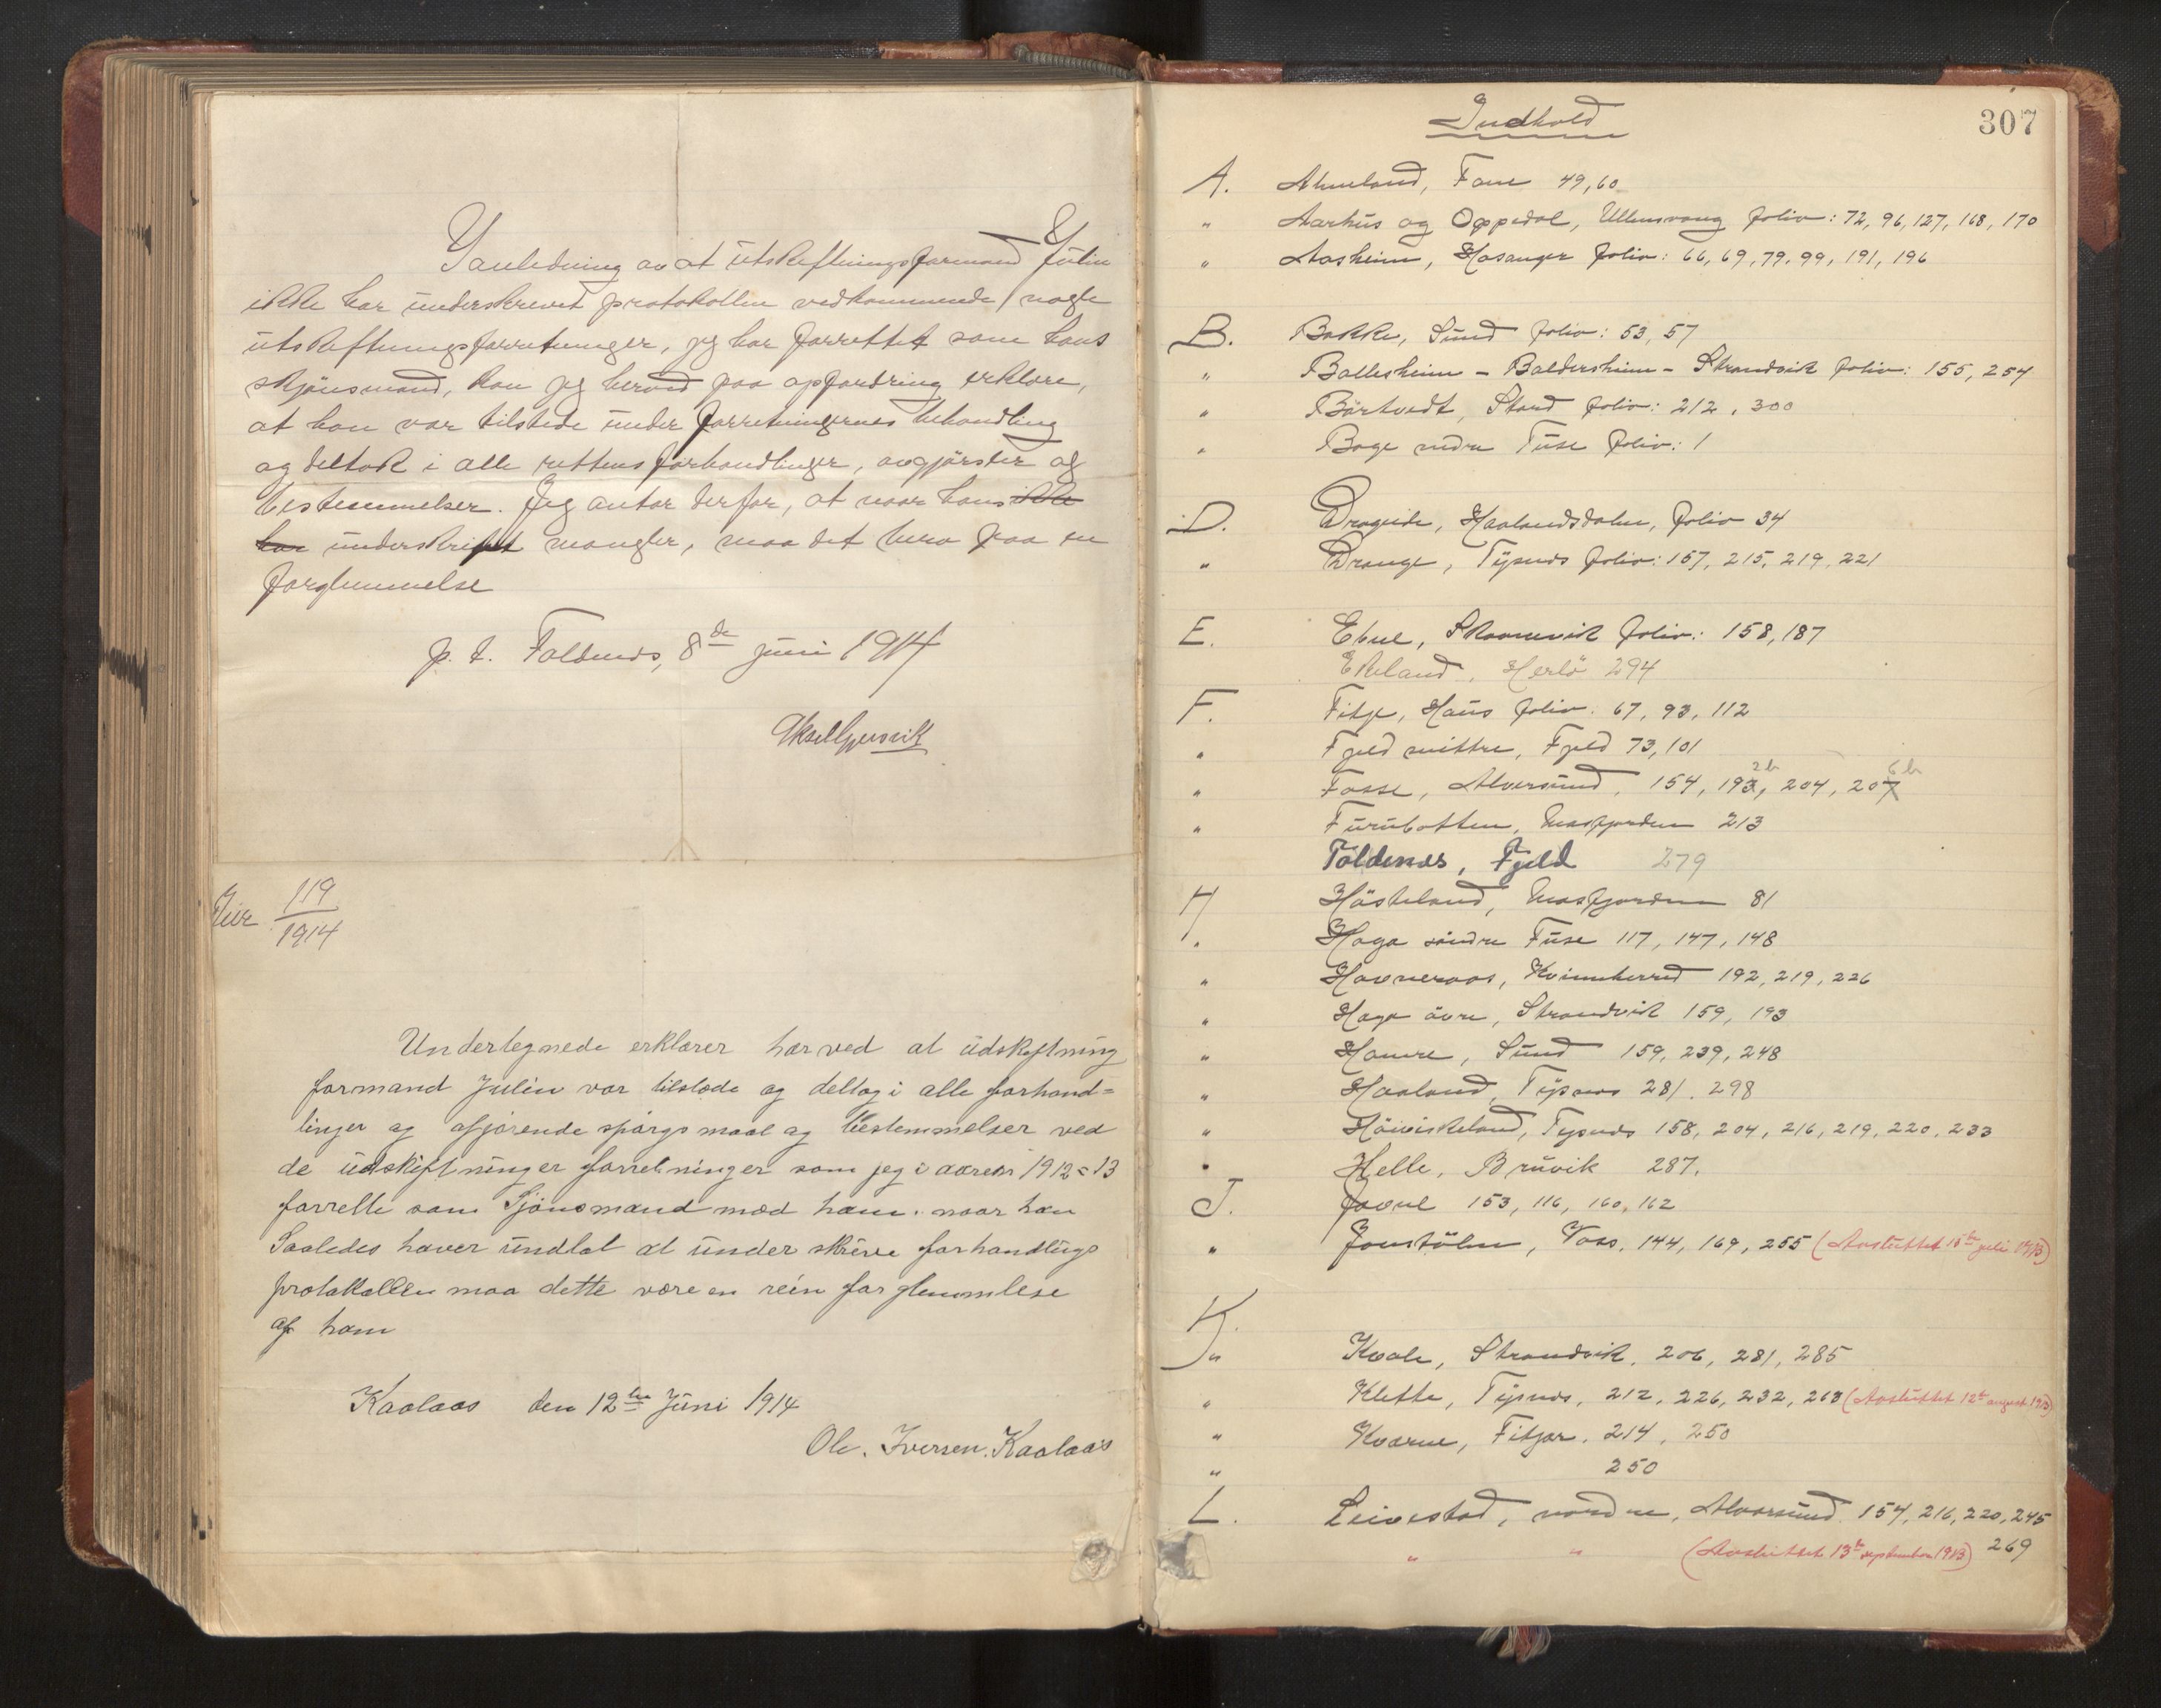 I anledning av at utskiftningsformand Julin
ikke har underskrevet protokollen vedkommende nogle
utskiftningsforretninger, jeg har forrettet som hans
skjönsmand, kan jeg herved paa opfordring erklære,
at han var tilstede under forretningernes behandling
og deltok i alle rettens forhandlinger, avgjörelser og
bestemmelser. Jeg antar derfor, at naar hans ikke
har underskrift mangler, maa det bero paa en
forglemmelse
p. t. Foldnes, 8de juni 1914
Aksel Gjersvik
Jnr 119/1914
Undertegnede erklærer herved at udskiftning
formand Julin var tilstæde og deltog i alle forhand=
linger og afjørende spørgsmaal og bestemmelser ved
de udskiftninger forretninger som jeg i aaren 1912=13
forrette som Sjønsmand med ham. naar han
Saaledes haver undlat at under skrive forhandlings
protokollen maa dette være en rein forglemmlese
af ham
Kaalaas den 12te Juni 1914
Ole. Iversen. Kaalaas
307
Indhold
A. Almeland, Fane 49, 60
" Aarhus og Oppedal, Ullensvang folio: 72, 96, 127, 168, 170
" Aasheim, Hosanger folio: 66, 69, 79, 99, 191, 196
B. Bakke, Sund folio: 53, 57
" Ballesheim - Baldersheim - Strandvik folio: 155, 254
" Börtvedt, Stord folio: 212, 300
" Boge nedre Fuse folio: 1
D. Drageide, Haalandsdalen, folio 34
" Drange, Tysnes folio: 157, 215, 219, 221
E. Ebne, Skaanevik folio: 158, 187
Ekeland, Herlö 294
F. Fitje, Haus folio: 67, 93, 112
" Fjeld midtre, Fjeld 73, 101
" Fosse, Alversund, 154, 193 2b, 204, 207 6b
" Furubotten, Masfjorden 213
Foldnes, Fjeld 279
H Hösteland, Masfjorden 81
" Haga söndre Fuse 117, 147, 148
" Havneraas, Kvinnherred 192, 219, 226
" Haga övre, Strandvik 159, 193
" Hamre, Sund 159, 239, 248
" Haaland, Tysnes 281, 298
" Höviskeland, Tysnes 158, 204, 216, 219, 220, 233
" Helle, Bruvik 287.
J. Javne 153, 116, 160, 162
" Jonstölen, Voss, 144, 169, 255 (Avsluttet 15de juli 1913)
K.
" Kvale, Strandvik, 206, 281, 285
" Klette, Tysnes, 212, 226, 232, 263 (Avsluttet 12te august 1913)
" Kværne, Fitjar, 214, 250
" 250
L. Leivestad, nordre, Alversund 154, 216, 220, 245
" " (Avsluttet 13de september 1913) 269